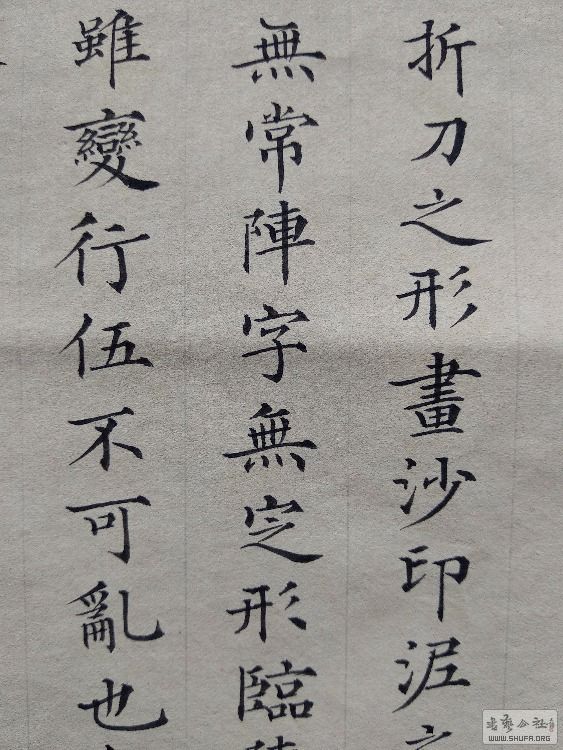 折刀之形畫沙印泥
無常陣字無定形臨
雖變行伍不可亂也
書藝公社
WWW.SHUFA.ORG